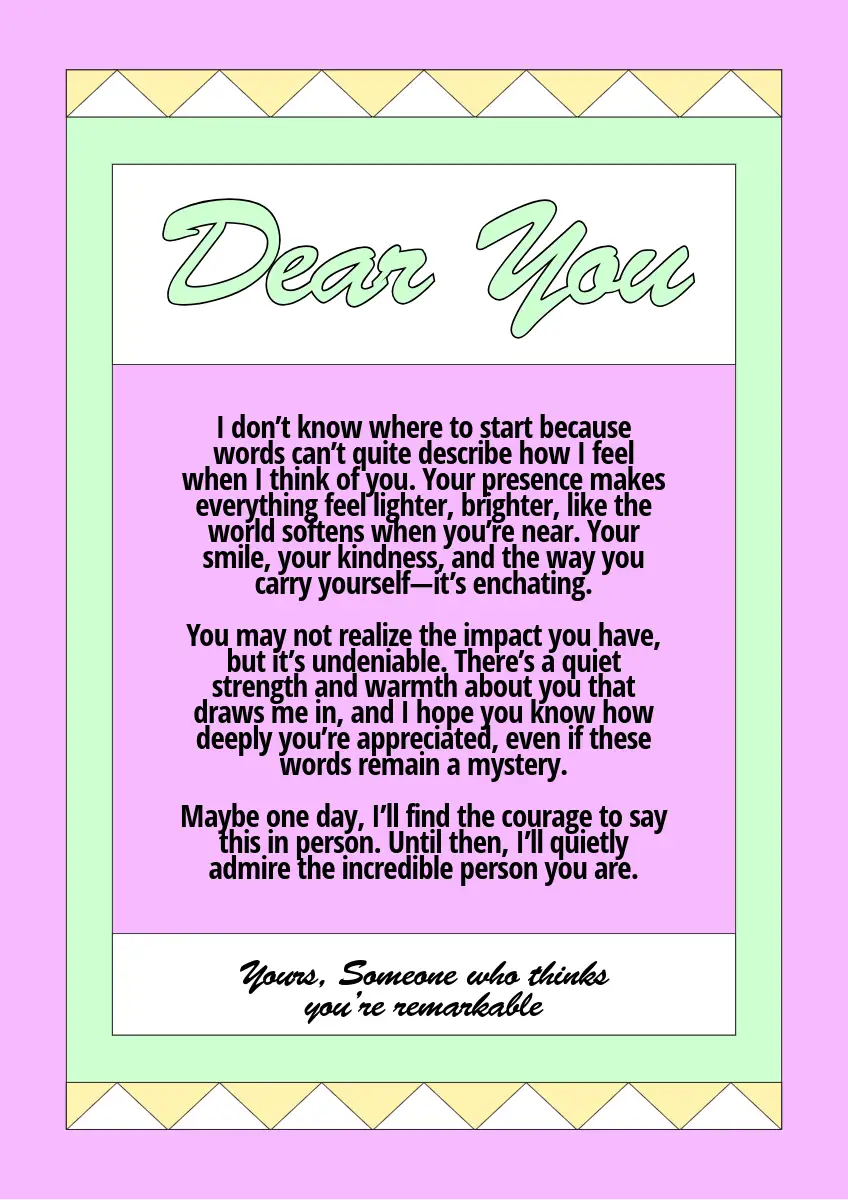 Dear You
I don’t know where to start because
words can’t quite describe how I feel
when I think of you. Your presence makes
everything feel lighter, brighter, like the
world softens when you’re near. Your
smile, your kindness, and the way you
carry yourself—it’s enchating.
You may not realize the impact you have,
but it’s undeniable. There’s a quiet
strength and warmth about you that
draws me in, and I hope you know how
deeply you’re appreciated, even if these
words remain a mystery.
Maybe one day, I’ll find the courage to say
this in person. Until then, I’ll quietly
admire the incredible person you are.
Yours, Someone who thinks
you’re remarkable